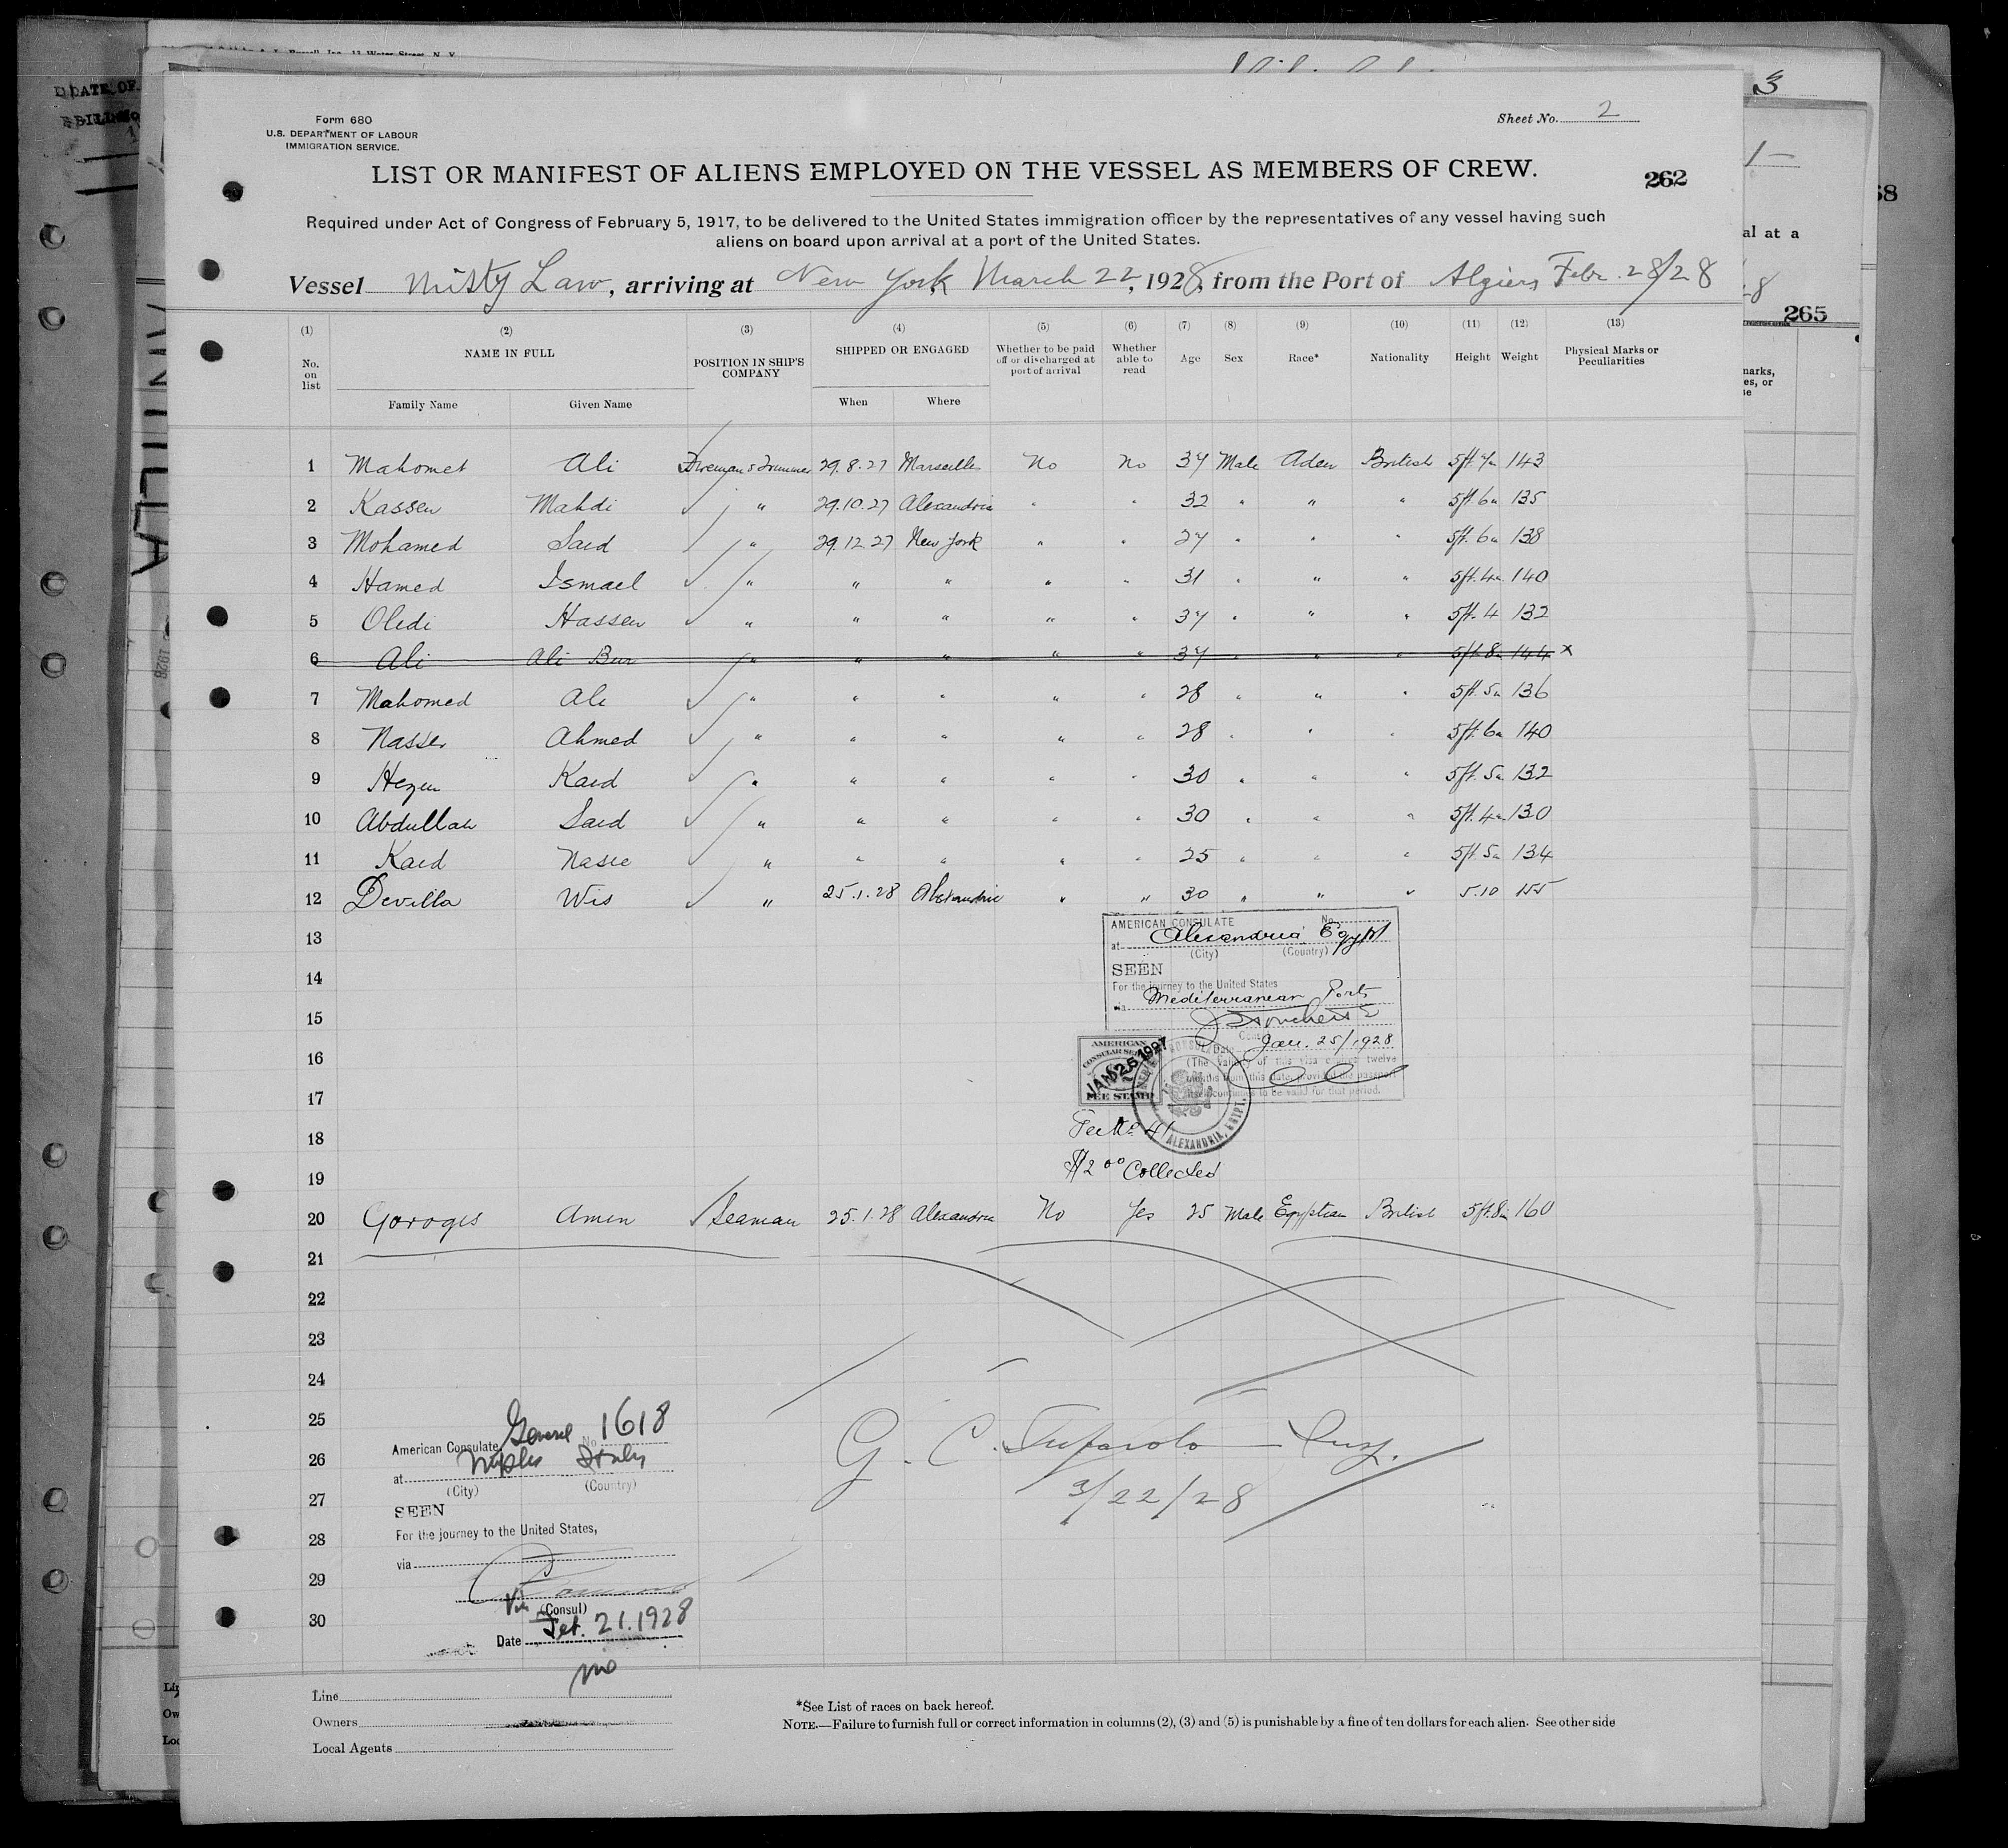 Form 680
U.S. DEPARTMENT OF LABOUR
IMMIGRATION SERVICE.
Sheet No. 2
LIST OR MANIFEST OF ALIENS EMPLOYED ON THE VESSEL AS MEMBERS OF CREW.
262
Required under Act of Congress of February 5, 1917, to be delivered to the United States immigration officer by the representatives of any vessel having such
aliens on board upon arrival at a port of the United States.
Vessel Misty Law, arriving at New York March 22, 1928, from the Port of Algiers Febr. 28/28
(1) (2) (3) (4) (5) (6) (7) (8) (9) (10) (11) (12) (13)
No. on list NAME IN FULL POSITION IN SHIP'S COMPANY SHIPPED OR ENGAGED Whether to be paid off or discharged at port of arrival Whether able to read Age Sex Race* Nationality Height Weight Physical Marks or Peculiarities
Family Name Given Name When Where
1 Mahomet Ali Fireman & Trimmer 29.8.27 Marseilles No No 37 Male Aden British 143
2 Kassen Mahdi " 29.10.27 Alexandria " " 32 " " " 5ft. 6in 135
3 Mohamed Said " 29.12.27 New York " " 27 " " " 5ft. 6in 138
4 Hamed Ismael " " " " " 31 " " " 5ft. 4in 140
5 Oledi Hassen " " " " " 37 " " " 5ft. 4 132
6 Ali Ali Bur " " " " " 37 " " " 5ft. 8in 144 x
7 Mahomed Ali " " " " " 28 " " " 5ft. 5in 136
8 Nasser Ahmed " " " " " 28 " " " 5ft. 6in 140
9 Hezen Kaid " " " " " 30 " " " 5ft. 5in 132
10 Abdullah Said " " " " " 30 " " " 5ft. 4in 130
11 Kaid Nasie " " " " " 25 " " " 5ft. 5in 134
12 Devilla Wis " 25.1.28 Alexandria " " 30 " " " 5.10 155
13
14
15
16
17
18
19
AMERICAN CONSULATE No.
at Alexandria, Egypt
(City) (Country)
SEEN
For the journey to the United States
via Mediterranean Ports
Date Jan. 25/1928
(The validity of this visa expires twelve
months from this date, provided the passport
itself continues to be valid for that period.
AMERICAN
CONSULAR SERVICE
FEE STAMP
JAN 25 1927
ALEXANDRIA, EGYPT.
Fee No. 41
$2.00 Collected
20 Goroges Amen Seaman 25.1.28 Alexandria No Yes 25 Male Egyptian British 5ft. 8in 160
21
22
23
24
25
26
27
28
29
30
American Consulate General No 1618
at Naples Italy
(City) (Country)
SEEN
For the journey to the United States,
via
Vice (Consul)
Date Feb. 21. 1928
no
G. C. Insp.
3/22/28
Line
Owners
Local Agents
*See List of races on back hereof.
NOTE.—Failure to furnish full or correct information in columns (2), (3) and (5) is punishable by a fine of ten dollars for each alien. See other side
3
al at a
265